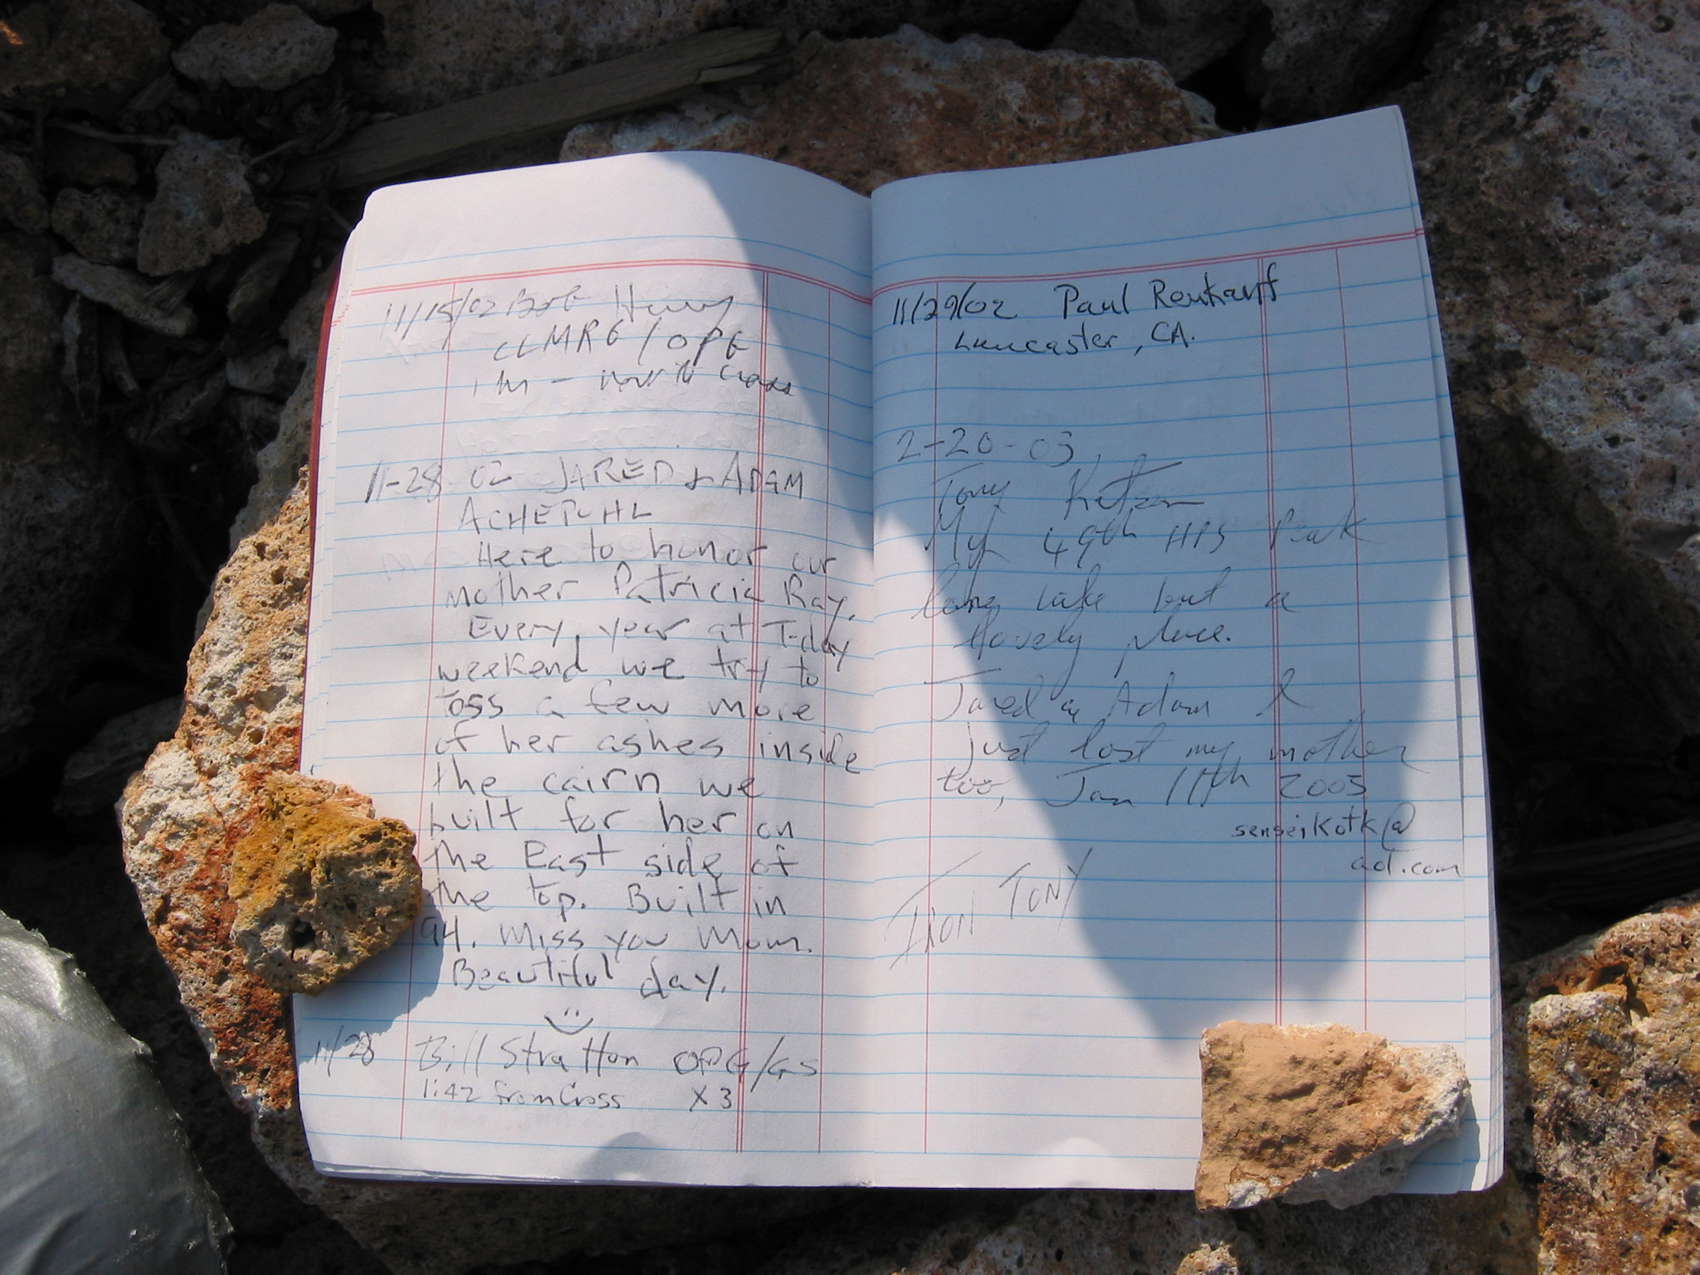 11/15/02 Bob
CLMRG / OPG
11-28 02 JARED & ADAM
Here to honor our
mother Patricia Ray.
Every year at T-day
weekend we try to
toss a few more
of her ashes inside
the cairn we
built for her on
the East side of
the top. Built in
94. Miss you Mom.
Beautiful day.
11/28 Bill Stratton OPG/GS
1:42 from Cross X3
11/29/02 Paul
Lancaster, CA.
2-20-03
Tony
My 49th HPS Peak
long hike but a
lovely place.
Jared & Adam I
just lost my mother
too, Jan 11th 2003
senseikotk@
aol.com
IRON TONY